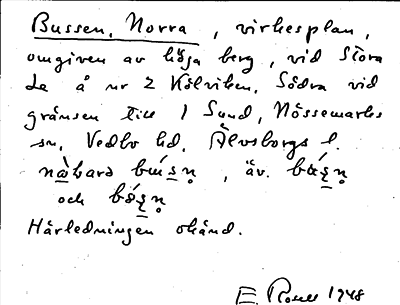 Bussen, Norra, virkesplan,
omgiven av höga berg, vid Stora
Le å nr 2 Kölviken. Södra vid
gränsen till 1 Sund, Nössemarks
sn, Vedbo hd. Älvsborgs l.
och
Härledningen okänd.
E. 1948